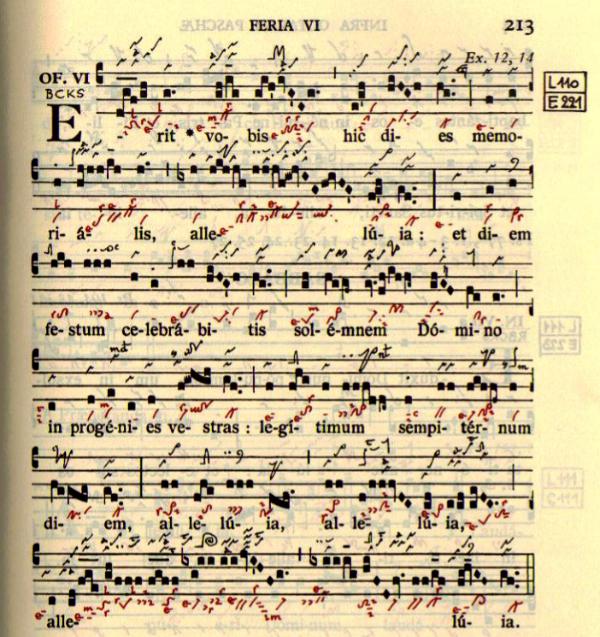 FERIA VI
213
Ex. 12, 14
OF. VI
BCKS
L 110
E 221
E - rit * vo - bis hic di - es memo-
ri - á - lis, alle - lú - ia : et di - em
fe - stum ce - lebrá - bi - tis sol - é - mnem Dó - mi - no
in progé - ni - es ve - stras : le - gí - timum sempi - tér - num
di - em, al - le - lú - ia, al - le - lú - ia,
alle - lú - ia.